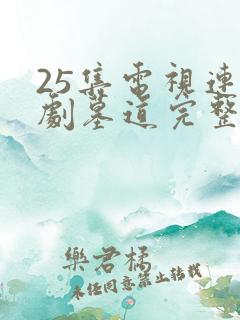 25集電視連
劇墓道完整
樂君橘
未经同意禁止转载